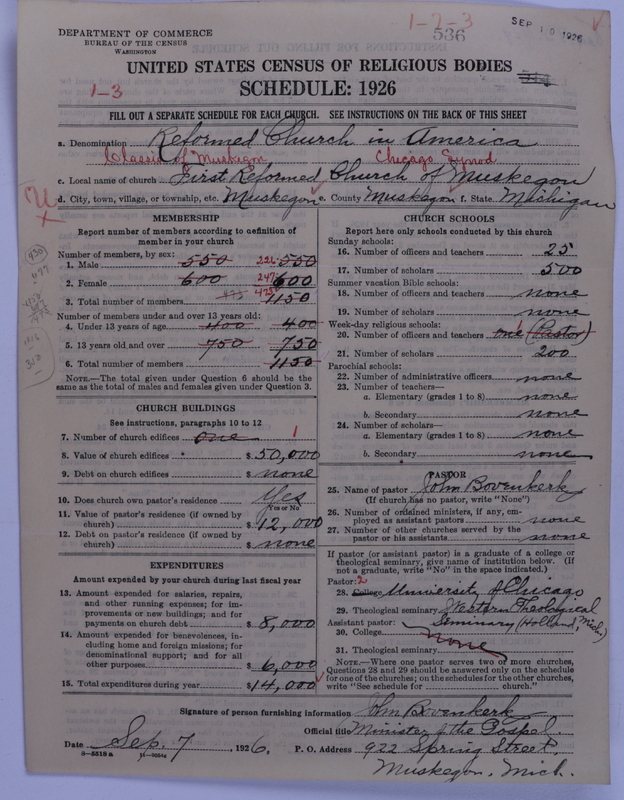 1-2-3
SEP 10 1926
536
DEPARTMENT OF COMMERCE
BUREAU OF THE CENSUS
WASHINGTON
UNITED STATES CENSUS OF RELIGIOUS BODIES
1-3
SCHEDULE: 1926
FILL OUT A SEPARATE SCHEDULE FOR EACH CHURCH. SEE INSTRUCTIONS ON THE BACK OF THIS SHEET
a. Denomination Reformed Church in America
Classis of Muskegon Chicago Synod
c. Local name of church First Reformed Church of Muskegon
d. City, town, village, or township, etc. Muskegon e. County Muskegon f. State Michigan
MEMBERSHIP
Report number of members according to definition of
member in your church
Number of members, by sex:
1. Male 550 226 550
2. Female 600 247 600
3. Total number of members 473 475 1150
Number of members under and over 13 years old:
4. Under 13 years of age 400 400
5. 13 years old and over 750 750
6. Total number of members 1150
NOTE.—The total given under Question 6 should be the
same as the total of males and females given under Question 3.
CHURCH BUILDINGS
See instructions, paragraphs 10 to 12
7. Number of church edifices one 1
8. Value of church edifices $ 50,000
9. Debt on church edifices $ none
10. Does church own pastor's residence Yes
Yes or No
11. Value of pastor's residence (if owned by
church) $ 12,000
12. Debt on pastor's residence (if owned by
church) $ none
EXPENDITURES
Amount expended by your church during last fiscal year
13. Amount expended for salaries, repairs,
and other running expenses; for im-
provements or new buildings; and for
payments on church debt $ 8,000
14. Amount expended for benevolences, in-
cluding home and foreign missions; for
denominational support; and for all
other purposes $ 6,000
15. Total expenditures during year $ 14,000
CHURCH SCHOOLS
Report here only schools conducted by this church
Sunday schools:
16. Number of officers and teachers 25
17. Number of scholars 500
Summer vacation Bible schools:
18. Number of officers and teachers none
19. Number of scholars none
Week-day religious schools:
20. Number of officers and teachers one (Pastor) 1
21. Number of scholars 200
Parochial schools:
22. Number of administrative officers none
23. Number of teachers—
a. Elementary (grades 1 to 8) none
b. Secondary none
24. Number of scholars—
a. Elementary (grades 1 to 8) none
b. Secondary none
PASTOR
25. Name of pastor John Bovenkerk
(If church has no pastor, write "None")
26. Number of ordained ministers, if any, em-
ployed as assistant pastors none
27. Number of other churches served by the
pastor or his assistants none
If pastor (or assistant pastor) is a graduate of a college or
theological seminary, give name of institution below. (If
not a graduate, write "No" in the space indicated.)
Pastor: 2
28. College University of Chicago
29. Theological seminary Western Theological
Assistant pastor: Seminary (Holland, Mich.)
30. College none
31. Theological seminary
NOTE.—Where one pastor serves two or more churches,
Questions 28 and 29 should be answered only on the schedule
for one of the churches; on the schedules for the other churches,
write "See schedule for church."
Signature of person furnishing information John Bovenkerk
Official title Minister of the Gospel
Date Sep. 7, 1926. P. O. Address 922 Spring Street,
Muskegon, Mich.